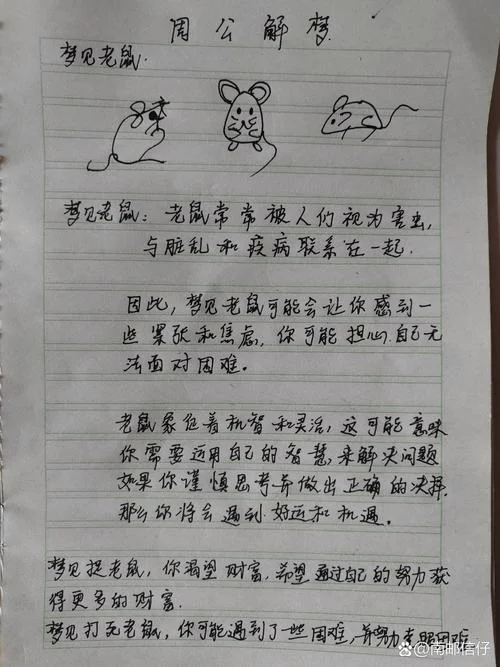 周公解梦
梦见老鼠.
梦见老鼠：老鼠常常被人们视为害虫,
与脏乱和疾病联系在一起.
因此，梦见老鼠可能会让你感到一
些紧张和焦虑，你可能担心自己无
法面对困难。
老鼠象征着机智和灵活，这可能意味
你需要运用自己的智慧，来解决问题
如果你谨慎思考并做出正确的决择,
那么你将会遇到好运和机遇。
梦见捉老鼠，你渴望财富，希望通过自己的努力获
得更多的财富.
梦见打死老鼠，你可能遇到了一些困难，并努力克服困难
@南邮信仔